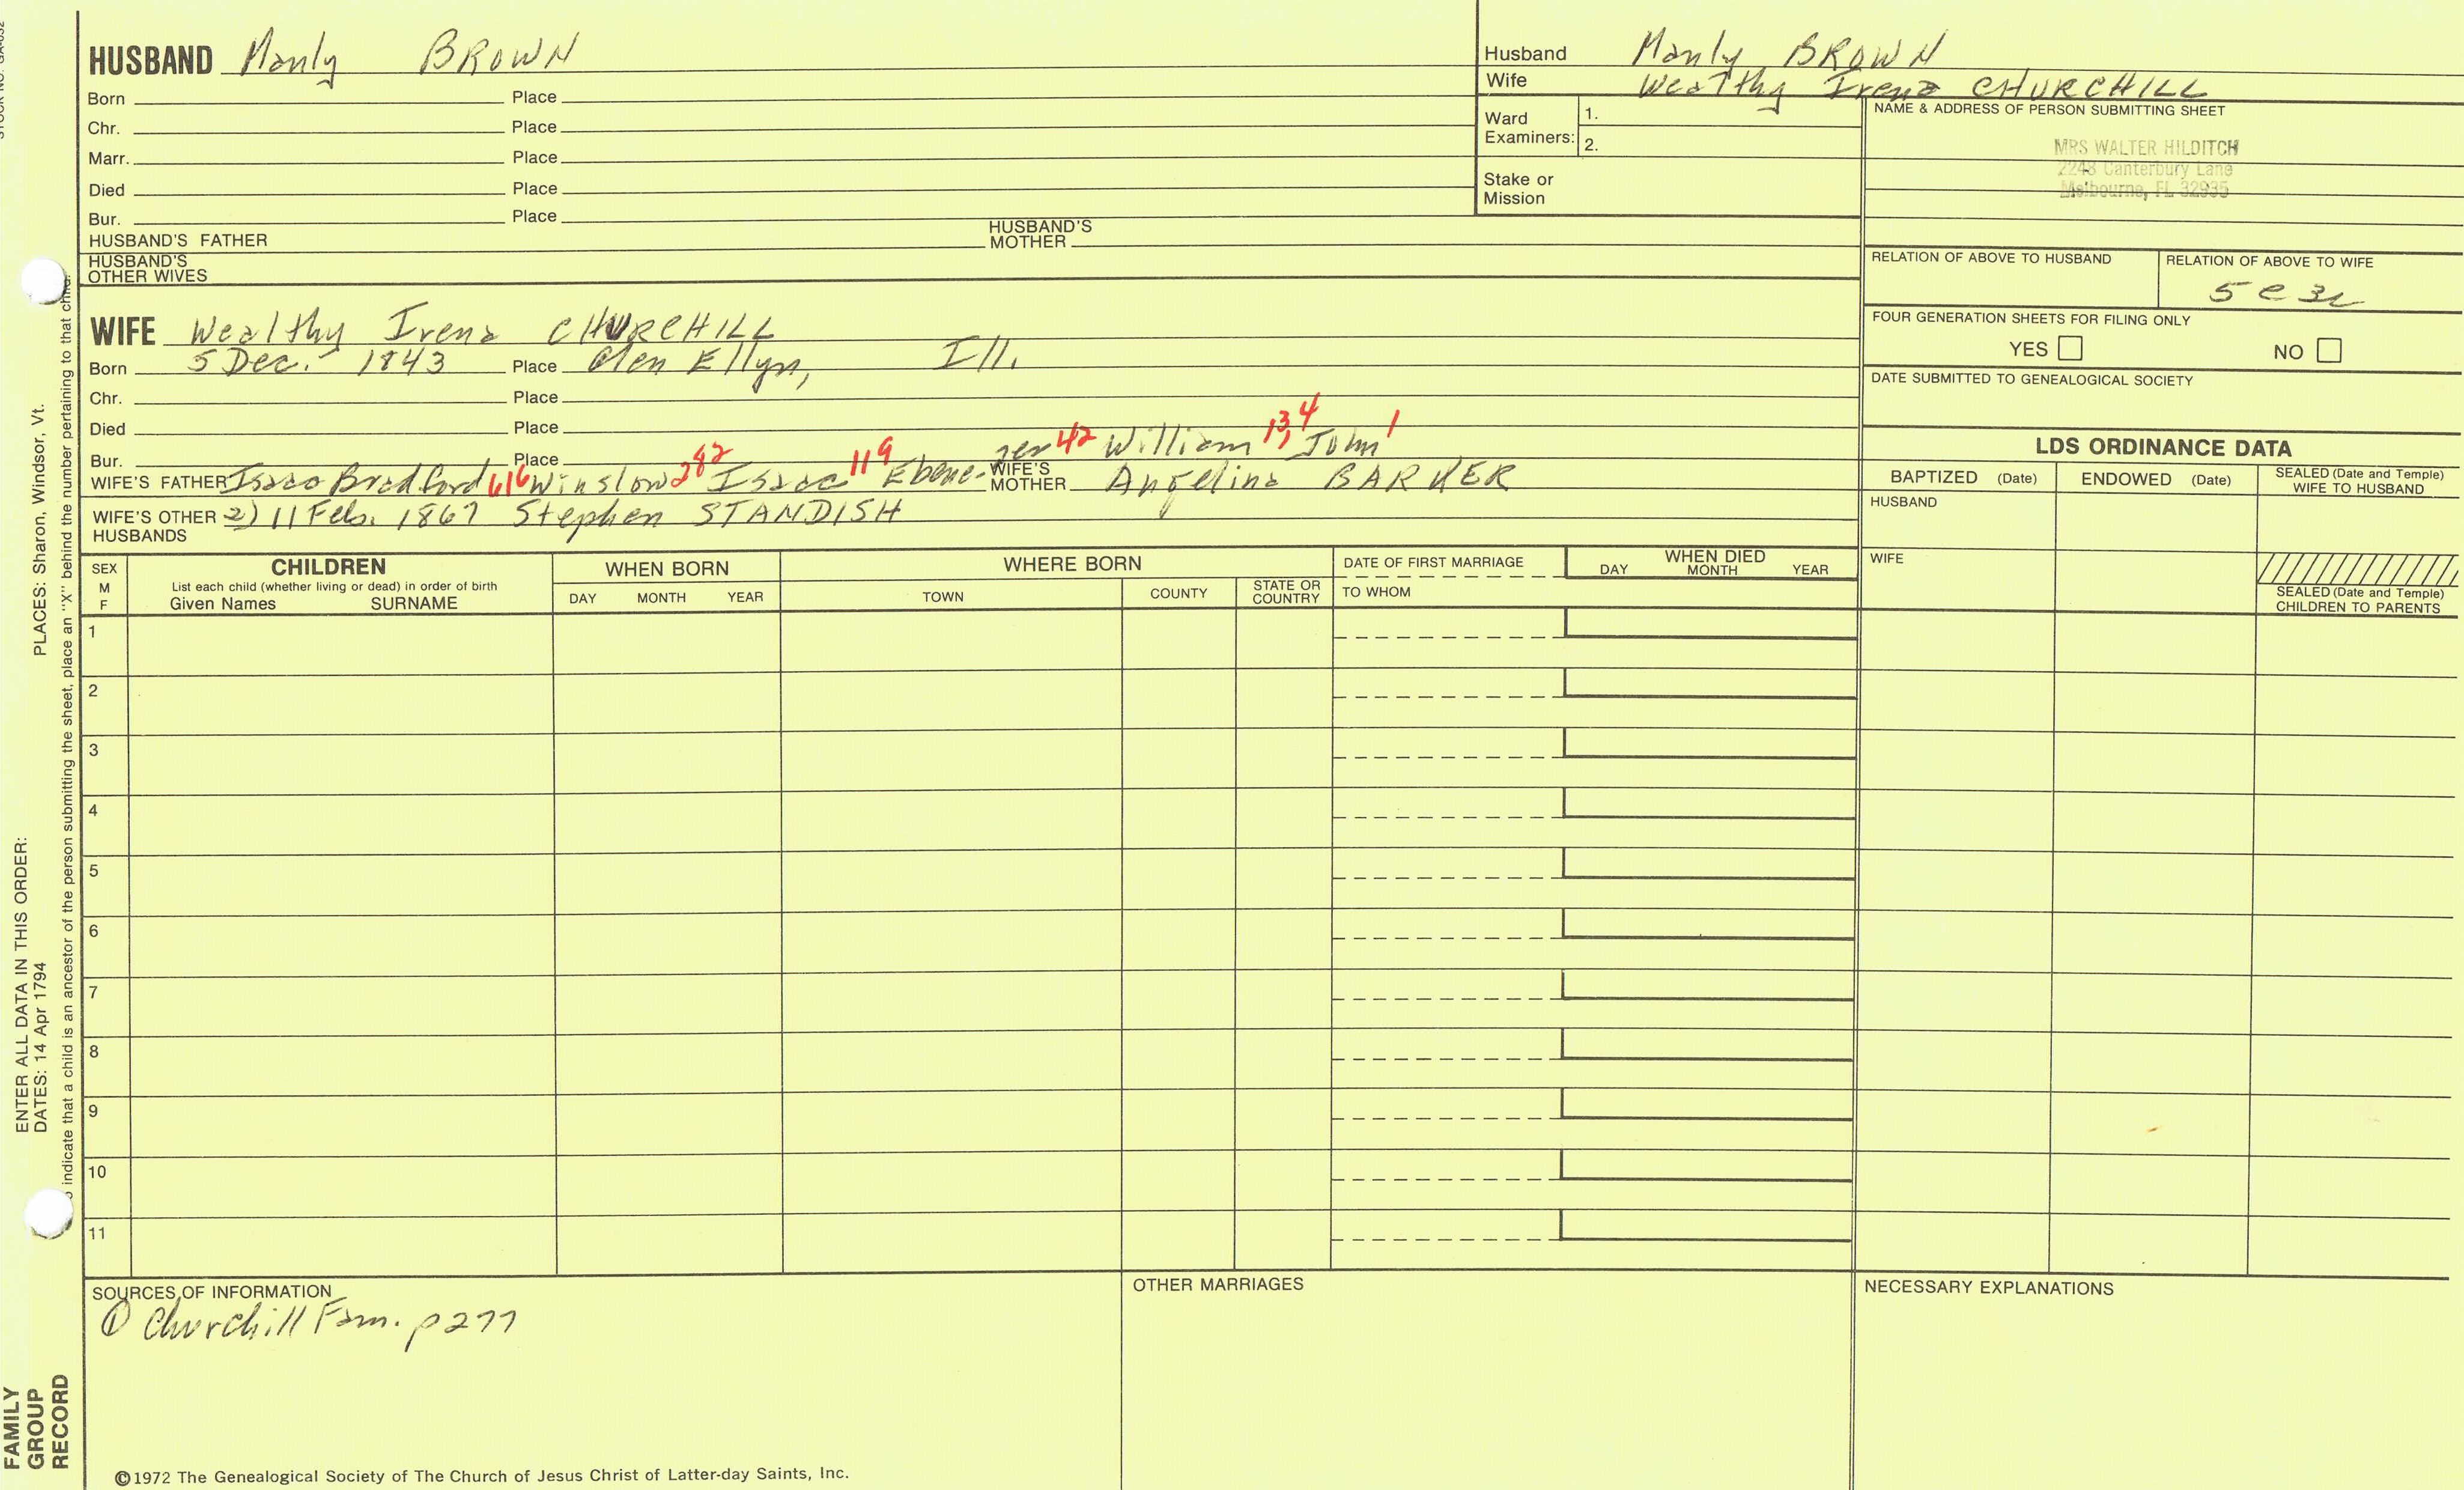 HUSBAND Manly BROWN
Born Place
Chr. Place
Marr. Place
Died Place
Bur. Place
HUSBAND'S FATHER HUSBAND'S MOTHER
HUSBAND'S OTHER WIVES
Husband Manly BROWN
Wife Wealthy Irena CHURCHILL
Ward Examiners: 1.
2.
Stake or Mission
NAME & ADDRESS OF PERSON SUBMITTING SHEET
MRS WALTER HILDITCH
2248 Canterbury Lane
Melbourne, FL 32935
RELATION OF ABOVE TO HUSBAND RELATION OF ABOVE TO WIFE
5 c 3r
FOUR GENERATION SHEETS FOR FILING ONLY
YES NO
DATE SUBMITTED TO GENEALOGICAL SOCIETY
WIFE Wealthy Irena CHURCHILL
Born 5 Dec. 1843 Place Glen Ellyn, Ill.
Chr. Place
Died Place
Bur. Place
WIFE'S FATHER Isaac Bradford 616 Winslow 282 Isaac 119 Ebenezer 42 William 13,4 John 1
WIFE'S MOTHER Angelina BARKER
WIFE'S OTHER HUSBANDS 2) 11 Feb. 1867 Stephen STANDISH
LDS ORDINANCE DATA
BAPTIZED (Date) ENDOWED (Date) SEALED (Date and Temple) WIFE TO HUSBAND
HUSBAND
WIFE
SEALED (Date and Temple) CHILDREN TO PARENTS
SEX M F
CHILDREN
List each child (whether living or dead) in order of birth
Given Names SURNAME
WHEN BORN
DAY MONTH YEAR
WHERE BORN
TOWN COUNTY STATE OR COUNTRY
DATE OF FIRST MARRIAGE
TO WHOM
WHEN DIED
DAY MONTH YEAR
1
2
3
4
5
6
7
8
9
10
11
SOURCES OF INFORMATION
① Churchill Fam. p 277
OTHER MARRIAGES
NECESSARY EXPLANATIONS
©1972 The Genealogical Society of The Church of Jesus Christ of Latter-day Saints, Inc.
FAMILY GROUP RECORD
ENTER ALL DATA IN THIS ORDER:
DATES: 14 Apr 1794 PLACES: Sharon, Windsor, Vt.
indicate that a child is an ancestor of the person submitting the sheet, place an "X" behind the number pertaining to that child.